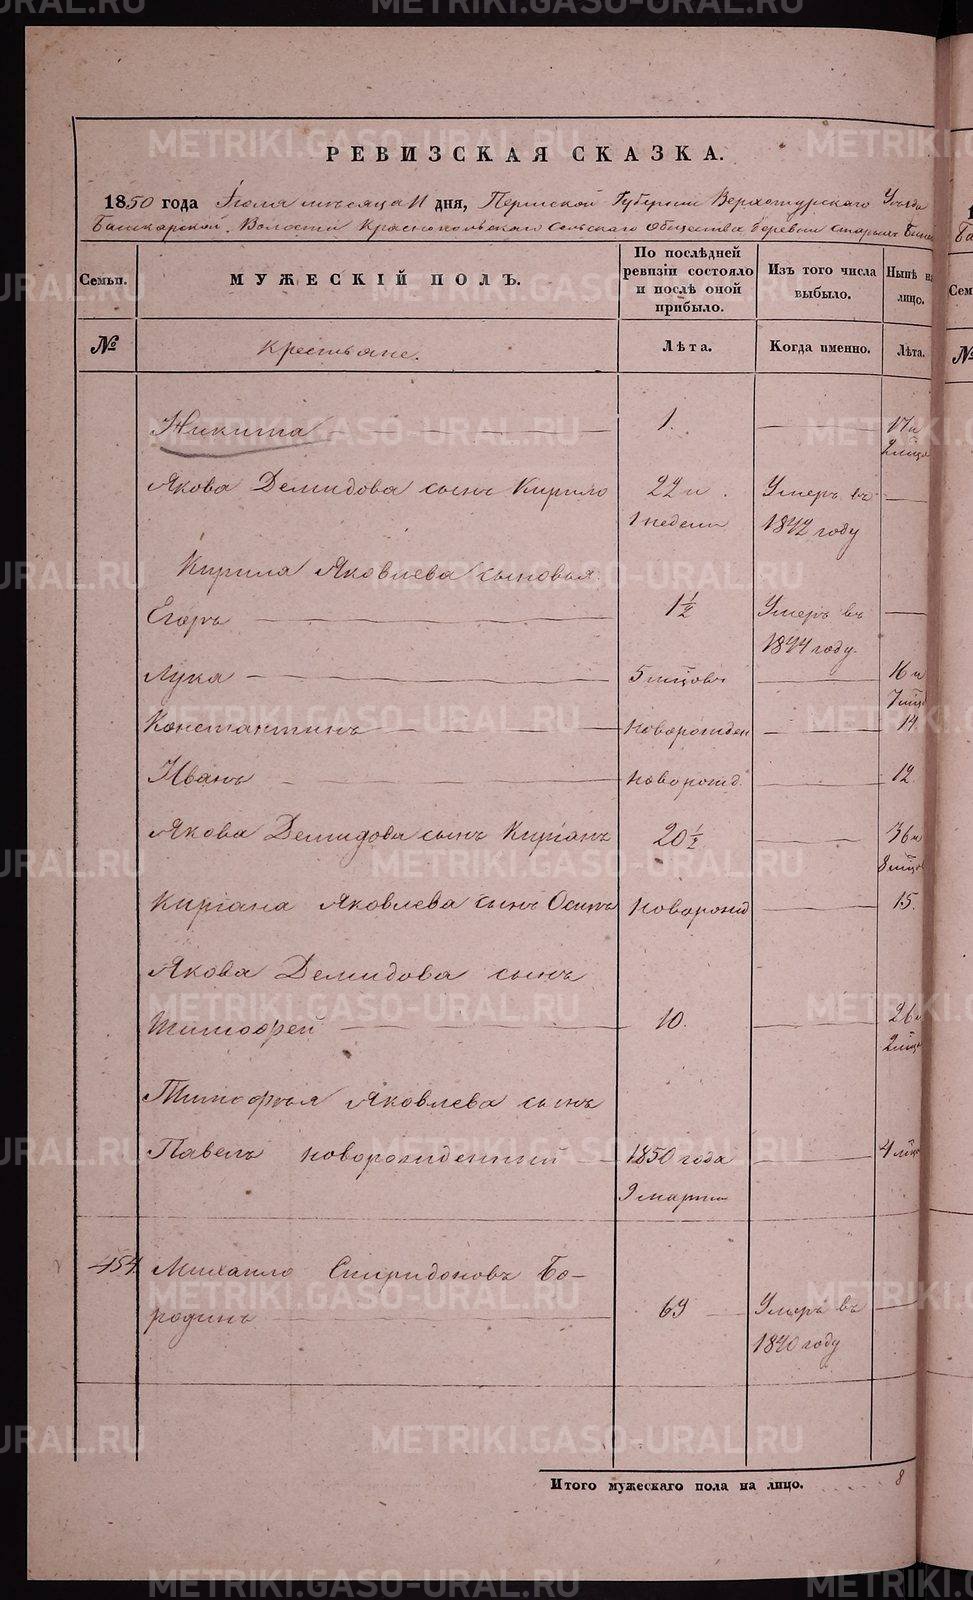 METRIKI.GASO-URAL.RU
РЕВИЗСКАЯ СКАЗКА.
1850 года Іюля мѣсяца 11 дня, Пермской Губерніи Верхотурскаго Уѣзда
Башкарской Волости Краснопольскаго Сельскаго Общества деревни Старыхъ
Семьи. МУЖЕСКІЙ ПОЛЪ. По послѣдней ревизіи состояло и послѣ оной прибыло. Изъ того числа выбыло. Нынѣ на лицо.
№ Крестьяне. Лѣта. Когда именно. Лѣта.
Никита 1. 17 и
2 мѣся
Якова Демидова сынъ Кирило 22 и Умеръ въ
1 недели 1842 году
Кирила Яковлева сыновья
Егоръ 1½ Умеръ въ
1844 году.
Лука 5 мѣсяцовъ 16 и
7 мѣся
Константинъ новорожден 14
Иванъ новорожд. 12.
Якова Демидова сынъ Киріанъ 20½ 36 и
8 мѣсяцов
Киріана Яковлева сынъ Осипъ новорожд 15.
Якова Демидова сынъ
Тимофей 10. 26 и
2 мѣся
Тимофѣя Яковлева сынъ
Павелъ новорожденный 1850 года 4 мѣся
9 марта
154 Михайло Спиридоновъ Бо-
родинъ 69 Умеръ въ
1840 году
Итого мужескаго пола на лицо. 8